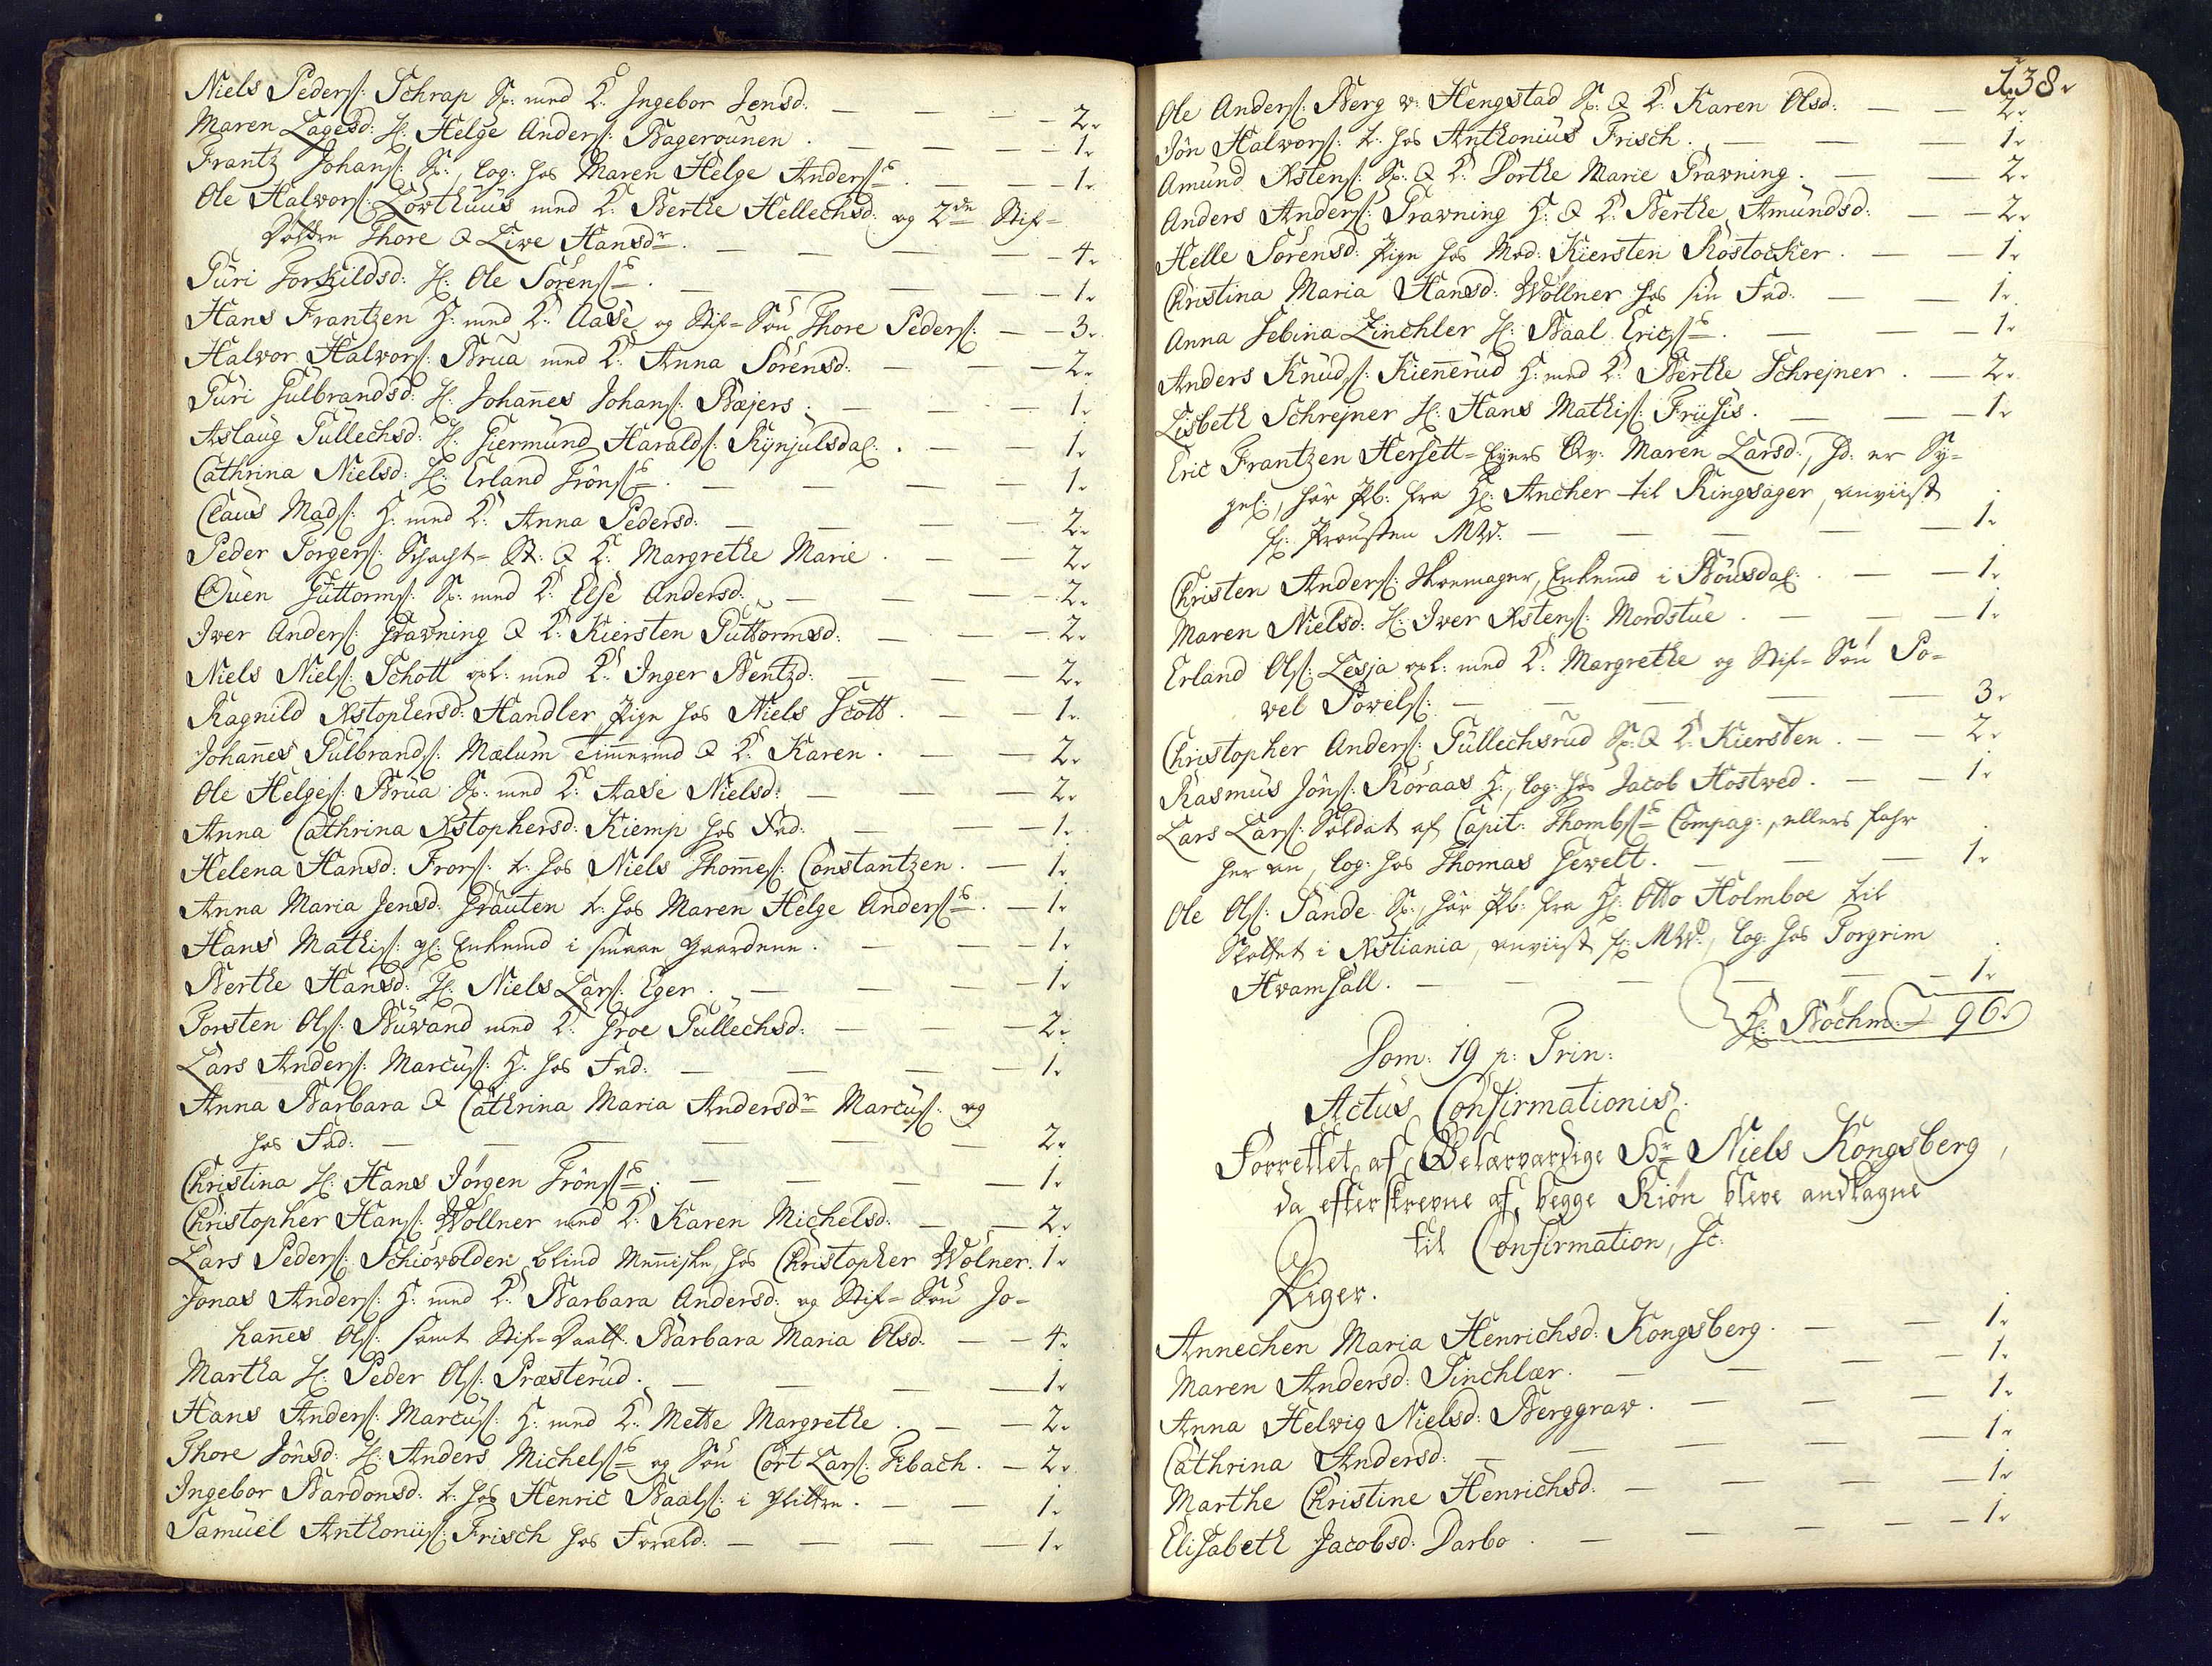 Niels Peders: Schrap Sp: med K: Ingebor Jensd: — — — — 2.
Maren Lagesd: H: Helge Anders: Bagerounen. — — — — 1.
Frantz Johans: Sp:, log: hos Maren Helge Anders:s — — — 1.
Ole Halvors: Lørthuus med K: Berthe Hellechsd: og 2de Stif-
Døttre Thore & Live Hansdr. — — — — 4.
Turi Torkildsd: H: Ole Sørens:s — — — — 1.
Hans Frantzen H: med K: Aase og Stif-Søn Thore Peders: — — 3.
Halvor Halvors: Brua med K: Anna Sørensd: — — — 2.
Turi Gulbrandsd: H: Johannes Johans: Bæjers. — — — 1.
Aslaug Tullechsd: H: Giermund Haralds: Rynjulsdal: — — 1.
Cathrina Nielsd: H: Erland Jøns:s — — — — 1.
Claus Mads: H: med K: Anna Pedersd: — — — — 2.
Peder Torgers: Schacht- St: & K: Margrethe Marie. — — 2.
Ouen Guttorms: Sp: med K: Else Andersd: — — — 2.
Iver Anders: Gravning & K: Kiersten Guttormsd: — — — 2.
Niels Niels: Schott opl: med K: Inger Bentzd: — — — 2.
Ragnild Xstophersd: Handler, Pige hos Niels Scott. — — 1.
Johannes Gulbrands: Mælum Timmermd & K: Karen. — — 2.
Ole Helges: Brua Sp: med K: Aase Nielsd: — — — 2.
Anna Cathrina Xstophersd: Kiemp hos Fad: — — — 1.
Helena Hansd: Frors: t: hos Niels Thomes: Constantzen. — 1.
Anna Maria Jensd: Gräuten t: hos Maren Helge Anders:s — 1.
Hans Mathis: gl: Enkemd i smaae Gaardene. — — — 1.
Berthe Hansd: H: Niels Lars: Eger. — — — — 1.
Torsten Ols: Buvand med K: Groe Tullechsd: — — 2.
Lars Anders: Marcus: H: hos Fad: — — — — 1.
Anna Barbara & Cathrina Maria Andersdr Marcus: og
hos Fad: — — — — — 2.
Christina H: Hans Jørgen Jøns:s — — — — 1.
Christopher Hans: Wøllner med K: Karen Michelsd: — — 2.
Lars Peders: Schiøvolden, blind Menniske, hos Christopher Wølner. 1.
Jonas Anders: H: med K: Barbara Andersd: og Stif-Søn Jo-
hannes Ols: samt Stif-Daatt: Barbara Maria Olsd. — — 4.
Martha H: Peder Ols: Præsterud. — — — — 1.
Hans Anders: Marcus: H: med K: Mette Margrethe. — — 2.
Thore Jönsd: H: Anders Michels:s og Søn Cort Lars: Fibach. — 2.
Ingebor Bardonsd: t: hos Henric Baals: i Hütten. — — 1.
Samuel Anthonius: Frisch hos Foræld: — — — — 1.
138.
Ole Anders: Berg v: Hengstad Sp: & K: Karen Olsd: — — 2.
Jøn Halvors: t: hos Anthonius Frisch. — — — 1.
Amund Xstens: Sp: & K: Dorthe Marie Gravning. — — 2.
Anders Anders: Gravning H: & K: Berthe Amundsd: — — 2.
Helle Sørensd: Pige hos Mad: Kiersten Rostocker. — — 1.
Christina Maria Hansd: Wøllner hos sin Fad: — — 1.
Anna Sebina Zinchler H: Baal Erics:s — — — 1.
Anders Knuds: Kiennerud H: med K: Berthe Schrejner. — 2.
Lisbeth Schrejner H: Hans Mathis: Frusis. — — — 1.
Eric Frantzen Hersett- Eyers Qv: Maren Larsd:, Hd: er Sy-
gel:, har Pl: fra H: Ancher til Ringsager, anviist
H: Prousten MW: — — — — — 1.
Christen Anders: Skoemager, Enkemd i Bøusdal: — — 1.
Maren Nielsd: H: Iver Xstens: Mordstue. — — — 1.
Erland Ols: Lesja opl: med K: Margrethe og Stif-Søn Po-
vel Povels: — — — — — 3.
Christopher Anders: Tullechsrud Sp: & K: Kiersten. — — 2.
Rasmus Jøns: Røraas H:, log: hos Jacob Hostved. — — 1.
Lars Lars: Soldat af Capit: Thombs:s Compag:, ellers fahr
her an, log: hos Thomas Gevelt. — — — 1.
Ole Ols: Sande Sp:, har Pl: fra H: Otto Holmboe til
Slottet i Xstiania, anviist H: MW:, log: hos Torgrim
Hvamsall. — — — — — 1.
H: Bøchm: 96.
Dom: 19 p: Trin:
Actus Confirmationis.
Forrettet af Velærværdige Hr Niels Kongsberg,
da efterskrevne af begge Kiøn bleve andtagne
til Confirmation, sc:
Piger.
Annechen Maria Henrichsd: Kongsberg. — — 1.
Maren Andersd: Sinchlær. — — — 1.
Anna Helvig Nielsd: Berggrav. — — — 1.
Cathrina Andersd: — — — — 1.
Marthe Christine Henrichsd: — — — 1.
Elisabeth Jacobsd: Darbo. — — — — 1.